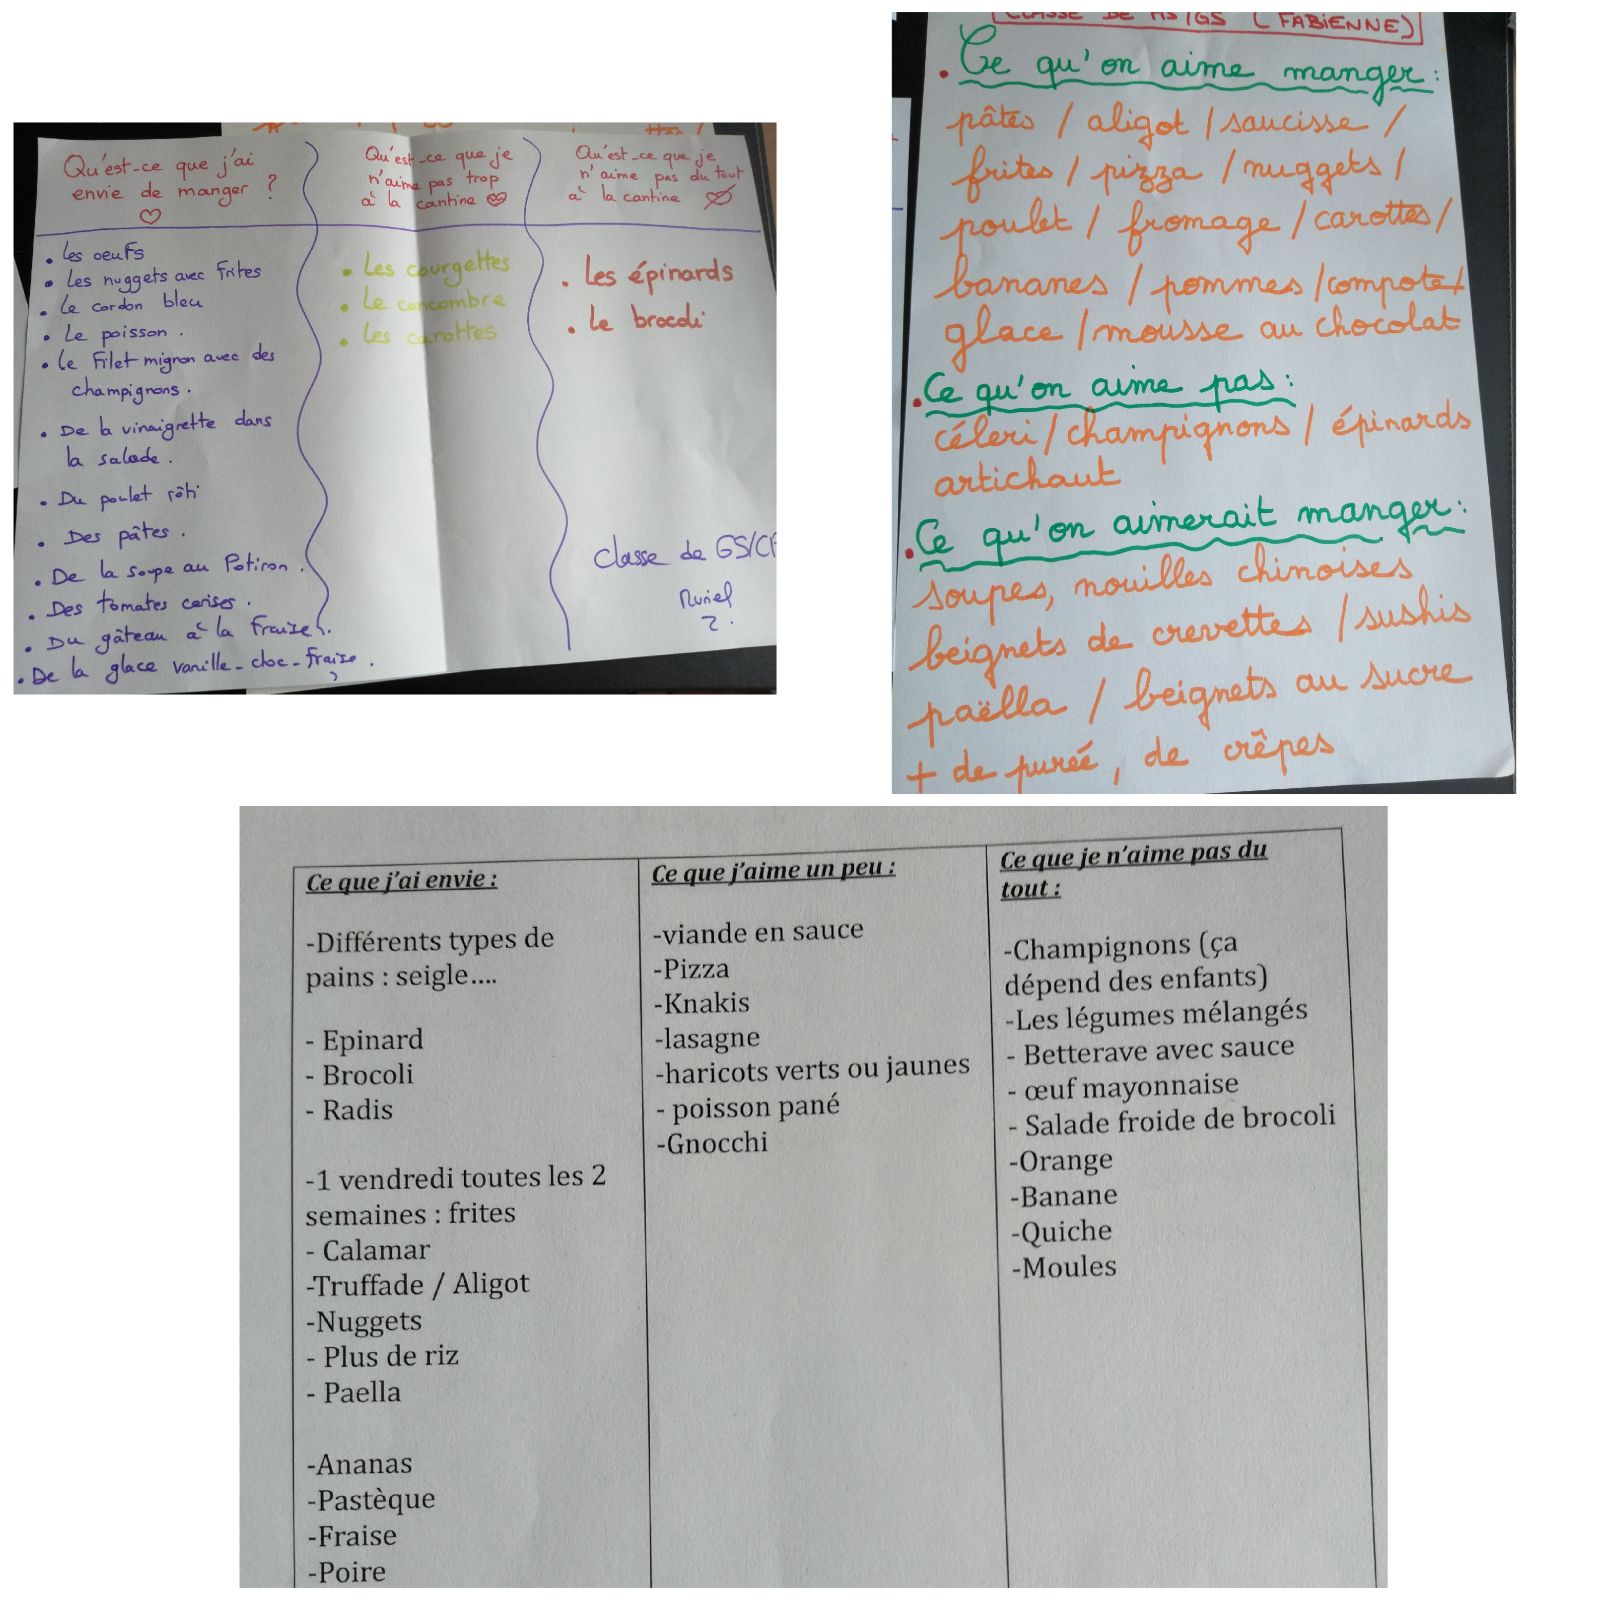 Qu'est-ce que j'ai
envie de manger ?
Qu'est-ce que je
n'aime pas trop
à la cantine
Qu'est-ce que je
n'aime pas du tout
à la cantine
• Les oeufs
• Les nuggets avec frites
• Le cordon bleu
• Le poisson.
• Le Filet mignon avec des
champignons.
• De la vinaigrette dans
la salade.
• Du poulet rôti
• Des pâtes.
• De la soupe au Potiron.
• Des tomates cerises.
• Du gâteau à la Fraise.
• De la glace vanille-choc-fraise.
• Les courgettes
• Le concombre
• Les carottes
• Les épinards
• Le brocoli
Classe de GS/CP
Muriel
CLASSE DE MS/GS (FABIENNE)
• Ce qu'on aime manger :
pâtes / aligot / saucisse /
frites / pizza / nuggets /
poulet / fromage / carottes /
bananes / pommes / compotes
glace / mousse au chocolat
• Ce qu'on aime pas :
céleri / champignons / épinards
artichaut
• Ce qu'on aimerait manger :
soupes, nouilles chinoises
beignets de crevettes / sushis
paëlla / beignets au sucre
+ de purée, de crêpes
Ce que j'ai envie :
-Différents types de
pains : seigle....
- Epinard
- Brocoli
- Radis
-1 vendredi toutes les 2
semaines : frites
- Calamar
-Truffade / Aligot
-Nuggets
- Plus de riz
- Paella
-Ananas
-Pastèque
-Fraise
-Poire
Ce que j'aime un peu :
-viande en sauce
-Pizza
-Knakis
-lasagne
-haricots verts ou jaunes
- poisson pané
-Gnocchi
Ce que je n'aime pas du
tout :
-Champignons (ça
dépend des enfants)
-Les légumes mélangés
- Betterave avec sauce
- œuf mayonnaise
- Salade froide de brocoli
-Orange
-Banane
-Quiche
-Moules